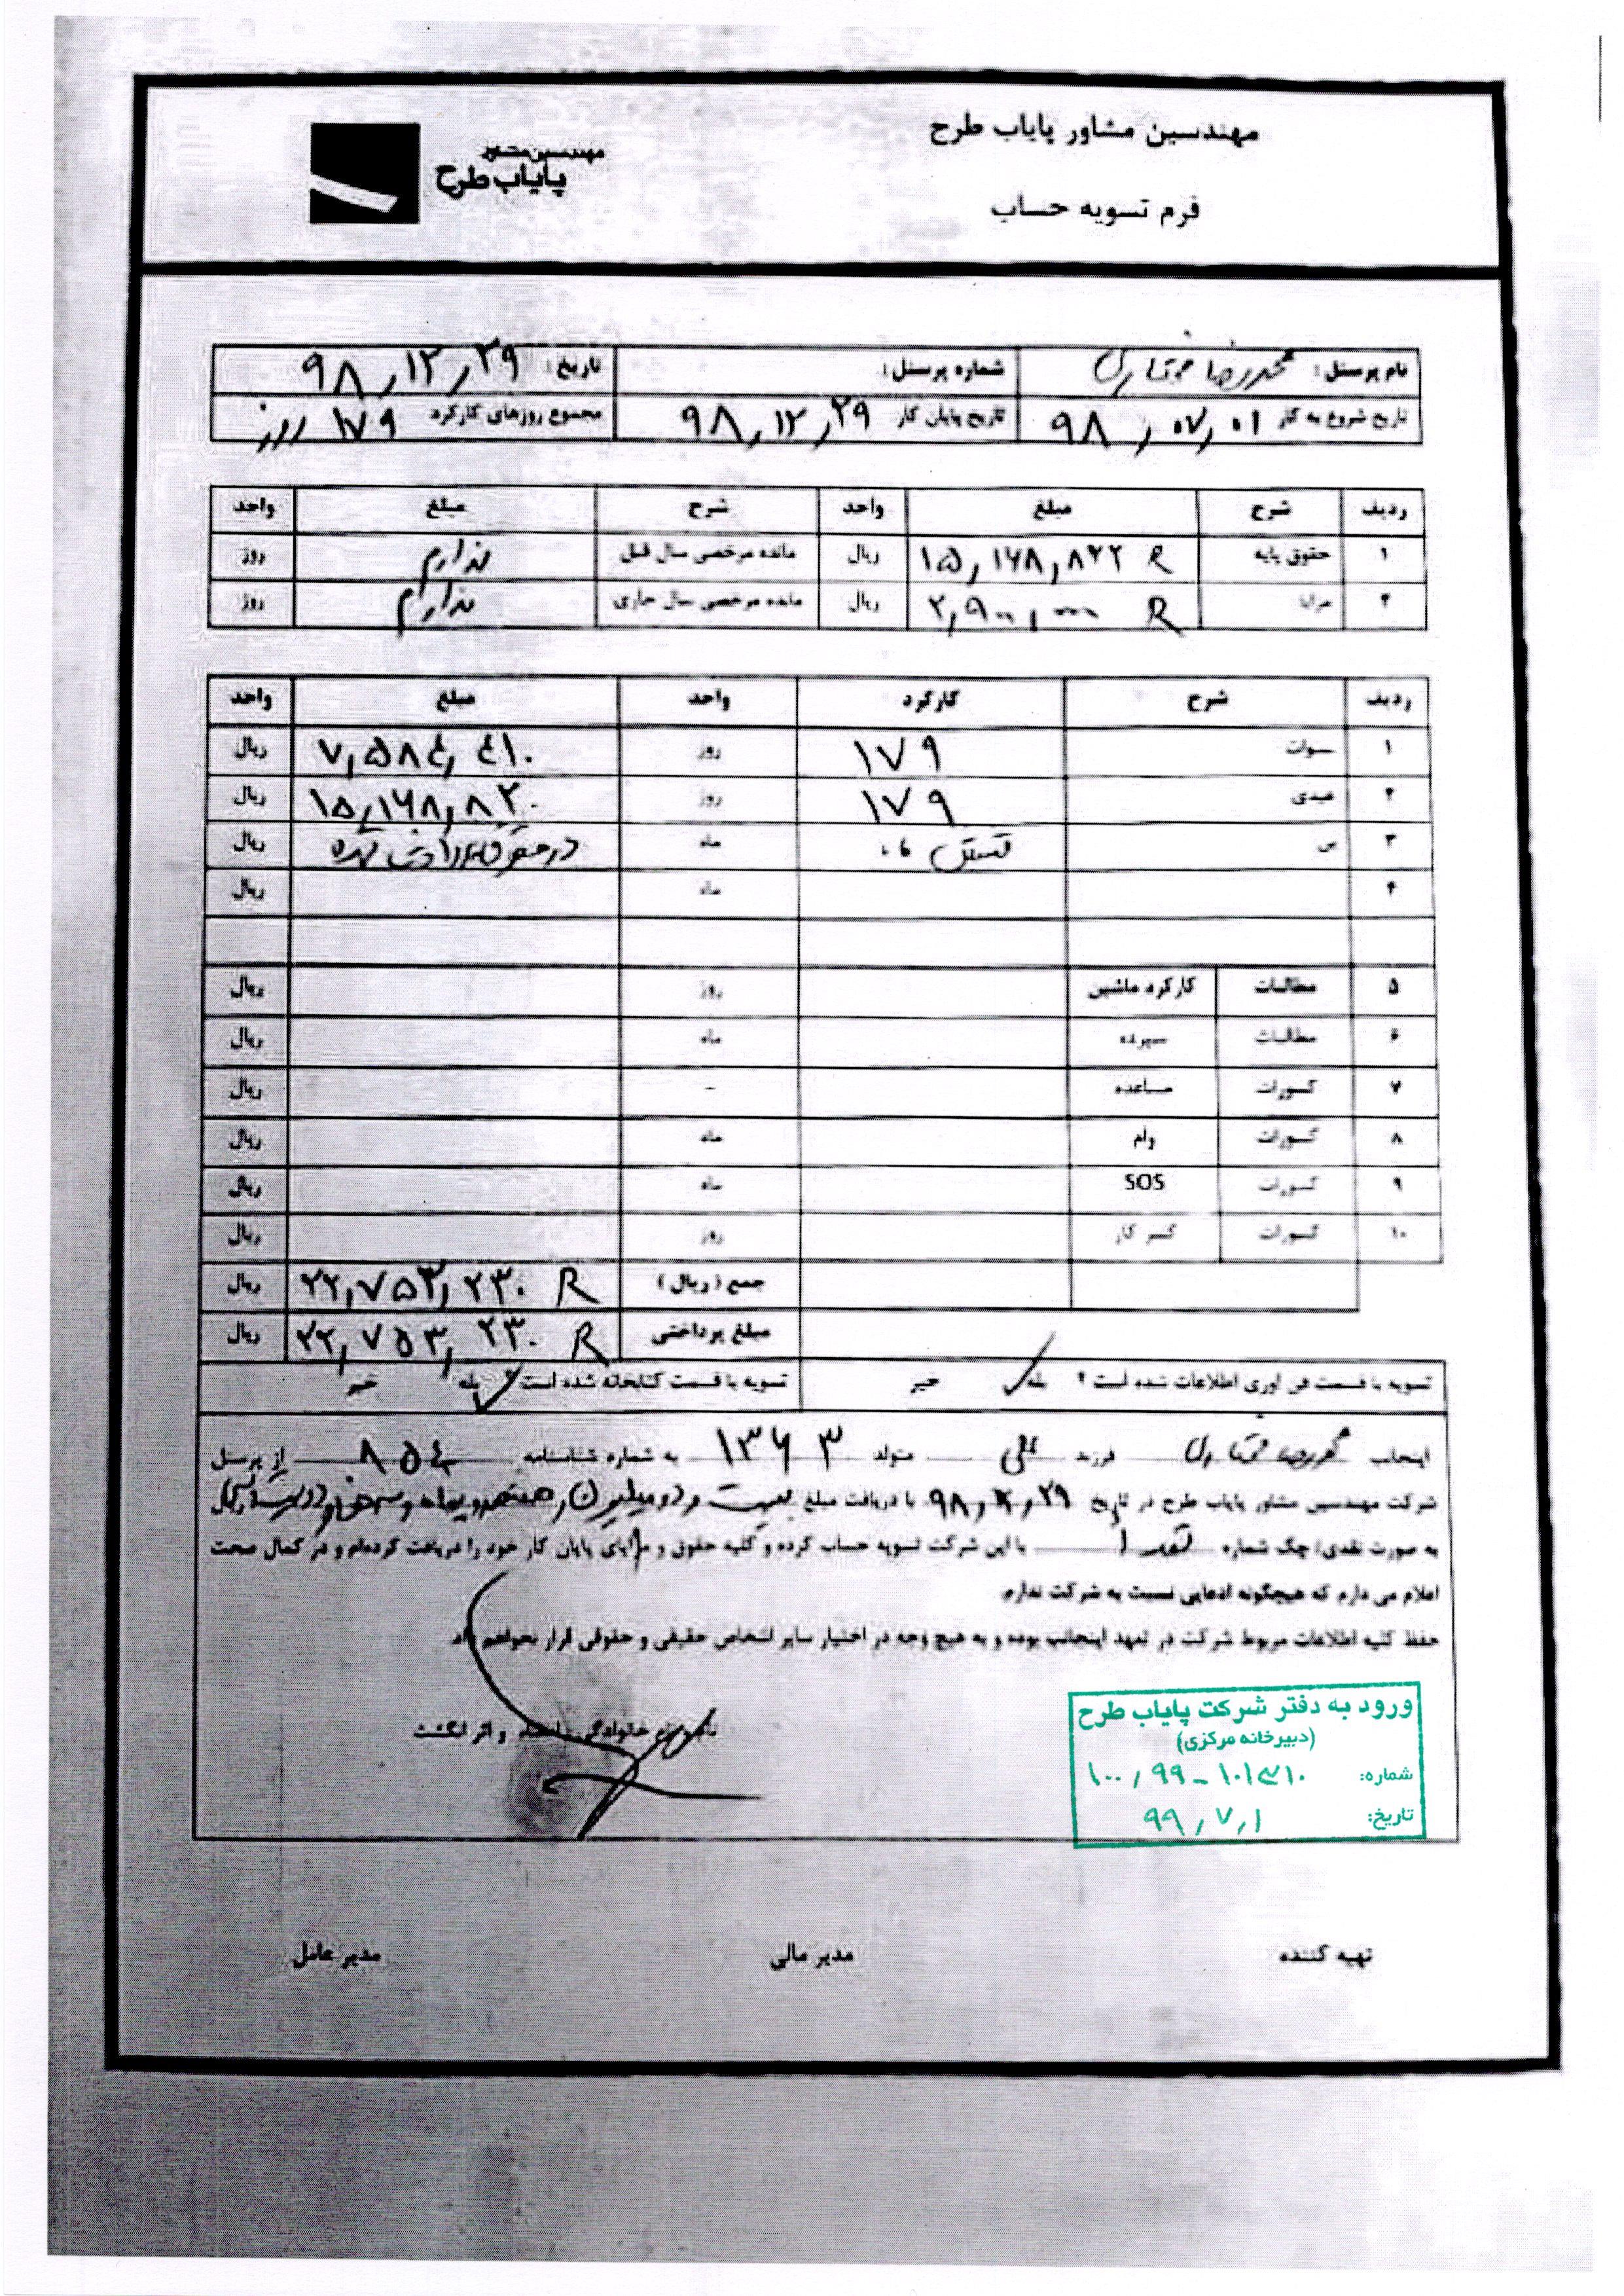 مهندسین مشاور پایاب طرح
مهندسین مشاور
پایاب طرح
فرم تسویه حساب
نام پرسنل: محمدرضا شماره پرسنل: تاریخ: ۹۸,۱۲,۲۹
تاریخ شروع به کار ۹۸,۰۷,۰۱ تاریخ پایان کار ۹۸,۱۲,۲۹ مجموع روزهای کارکرد ۱۷۹ روز
ردیف شرح مبلغ واحد شرح مبلغ واحد
۱ حقوق پایه ۱۵,۱۶۸,۸۲۲ R ریال مانده مرخصی سال قبل ندارم روز
۲ مزایا ۲,۹۰۰,۰۰۰ R ریال مانده مرخصی سال جاری ندارم روز
ردیف شرح کارکرد واحد مبلغ واحد
۱ سنوات ۱۷۹ روز ۷,۵۸۴,۴۱۰ ریال
۲ عیدی ۱۷۹ روز ۱۵,۱۶۸,۸۲۰ ریال
۳ ماه ریال
۴ ماه ریال
۵ مطالبات کارکرد ماشین روز ریال
۶ مطالبات سپرده ماه ریال
۷ کسورات مساعده - ریال
۸ کسورات وام ماه ریال
۹ کسورات SOS ماه ریال
۱۰ کسورات کسر کار روز ریال
جمع (ریال) ۲۲,۷۵۳,۲۳۰ R ریال
مبلغ پرداختی ۲۲,۷۵۳,۲۳۰ R ریال
تسویه با قسمت فن اوری اطلاعات شده است ؟ بله خیر تسویه با قسمت کتابخانه شده است ؟ بله خیر
اینجانب محمدرضا فرزند علی متولد ۱۳۶۳ به شماره شناسنامه ۸۵۴ از پرسنل
شرکت مهندسین مشاور پایاب طرح در تاریخ ۹۸,۱۲,۲۹ با دریافت مبلغ بیست و دو میلیون و هفتصد و پنجاه و سه هزار و دویست و سی ریال
به صورت نقدی/چک شماره نقدا با این شرکت تسویه حساب کرده و کلیه حقوق و مزایای پایان کار خود را دریافت کرده‌ام و در کمال صحت
اعلام می دارم که هیچگونه ادعایی نسبت به شرکت ندارم.
حفظ کلیه اطلاعات مربوط شرکت در تعهد اینجانب بوده و به هیچ وجه در اختیار سایر اشخاص حقیقی و حقوقی قرار نخواهم داد.
نام و نام خانوادگی، امضاء و اثر انگشت
ورود به دفتر شرکت پایاب طرح
(دبیرخانه مرکزی)
شماره:
تاریخ: ۹۹,۷,۱
تهیه کننده مدیر مالی مدیر عامل